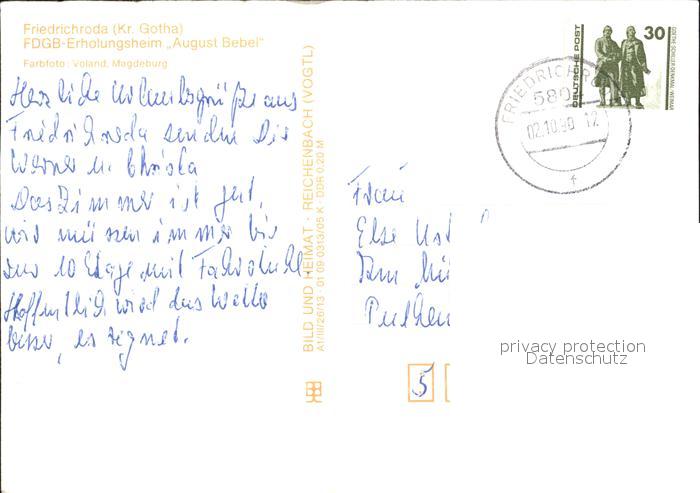 Friedrichroda (Kr. Gotha)
FDGB-Erholungsheim „August Bebel"
Farbfoto: Voland, Magdeburg
Herzliche Urlaubsgrüße aus
Friedrichroda senden Dir
Werner u. Christa
Das Zimmer ist gut,
wir müssen immer bis
zur 10 Etage mit Fahrstuhl.
Hoffentlich wird das Wetter
besser, es regnet.
BILD UND HEIMAT · REICHENBACH (VOGTL)
A1/III/26/13 · 01 09 0313/05 K · DDR 0,20 M
DEUTSCHE POST
30
GOETHE-SCHILLER-DENKMAL WEIMAR
FRIEDRICHR
580
02.10.90 12
Frau
Else
5
privacy protection
Datenschutz